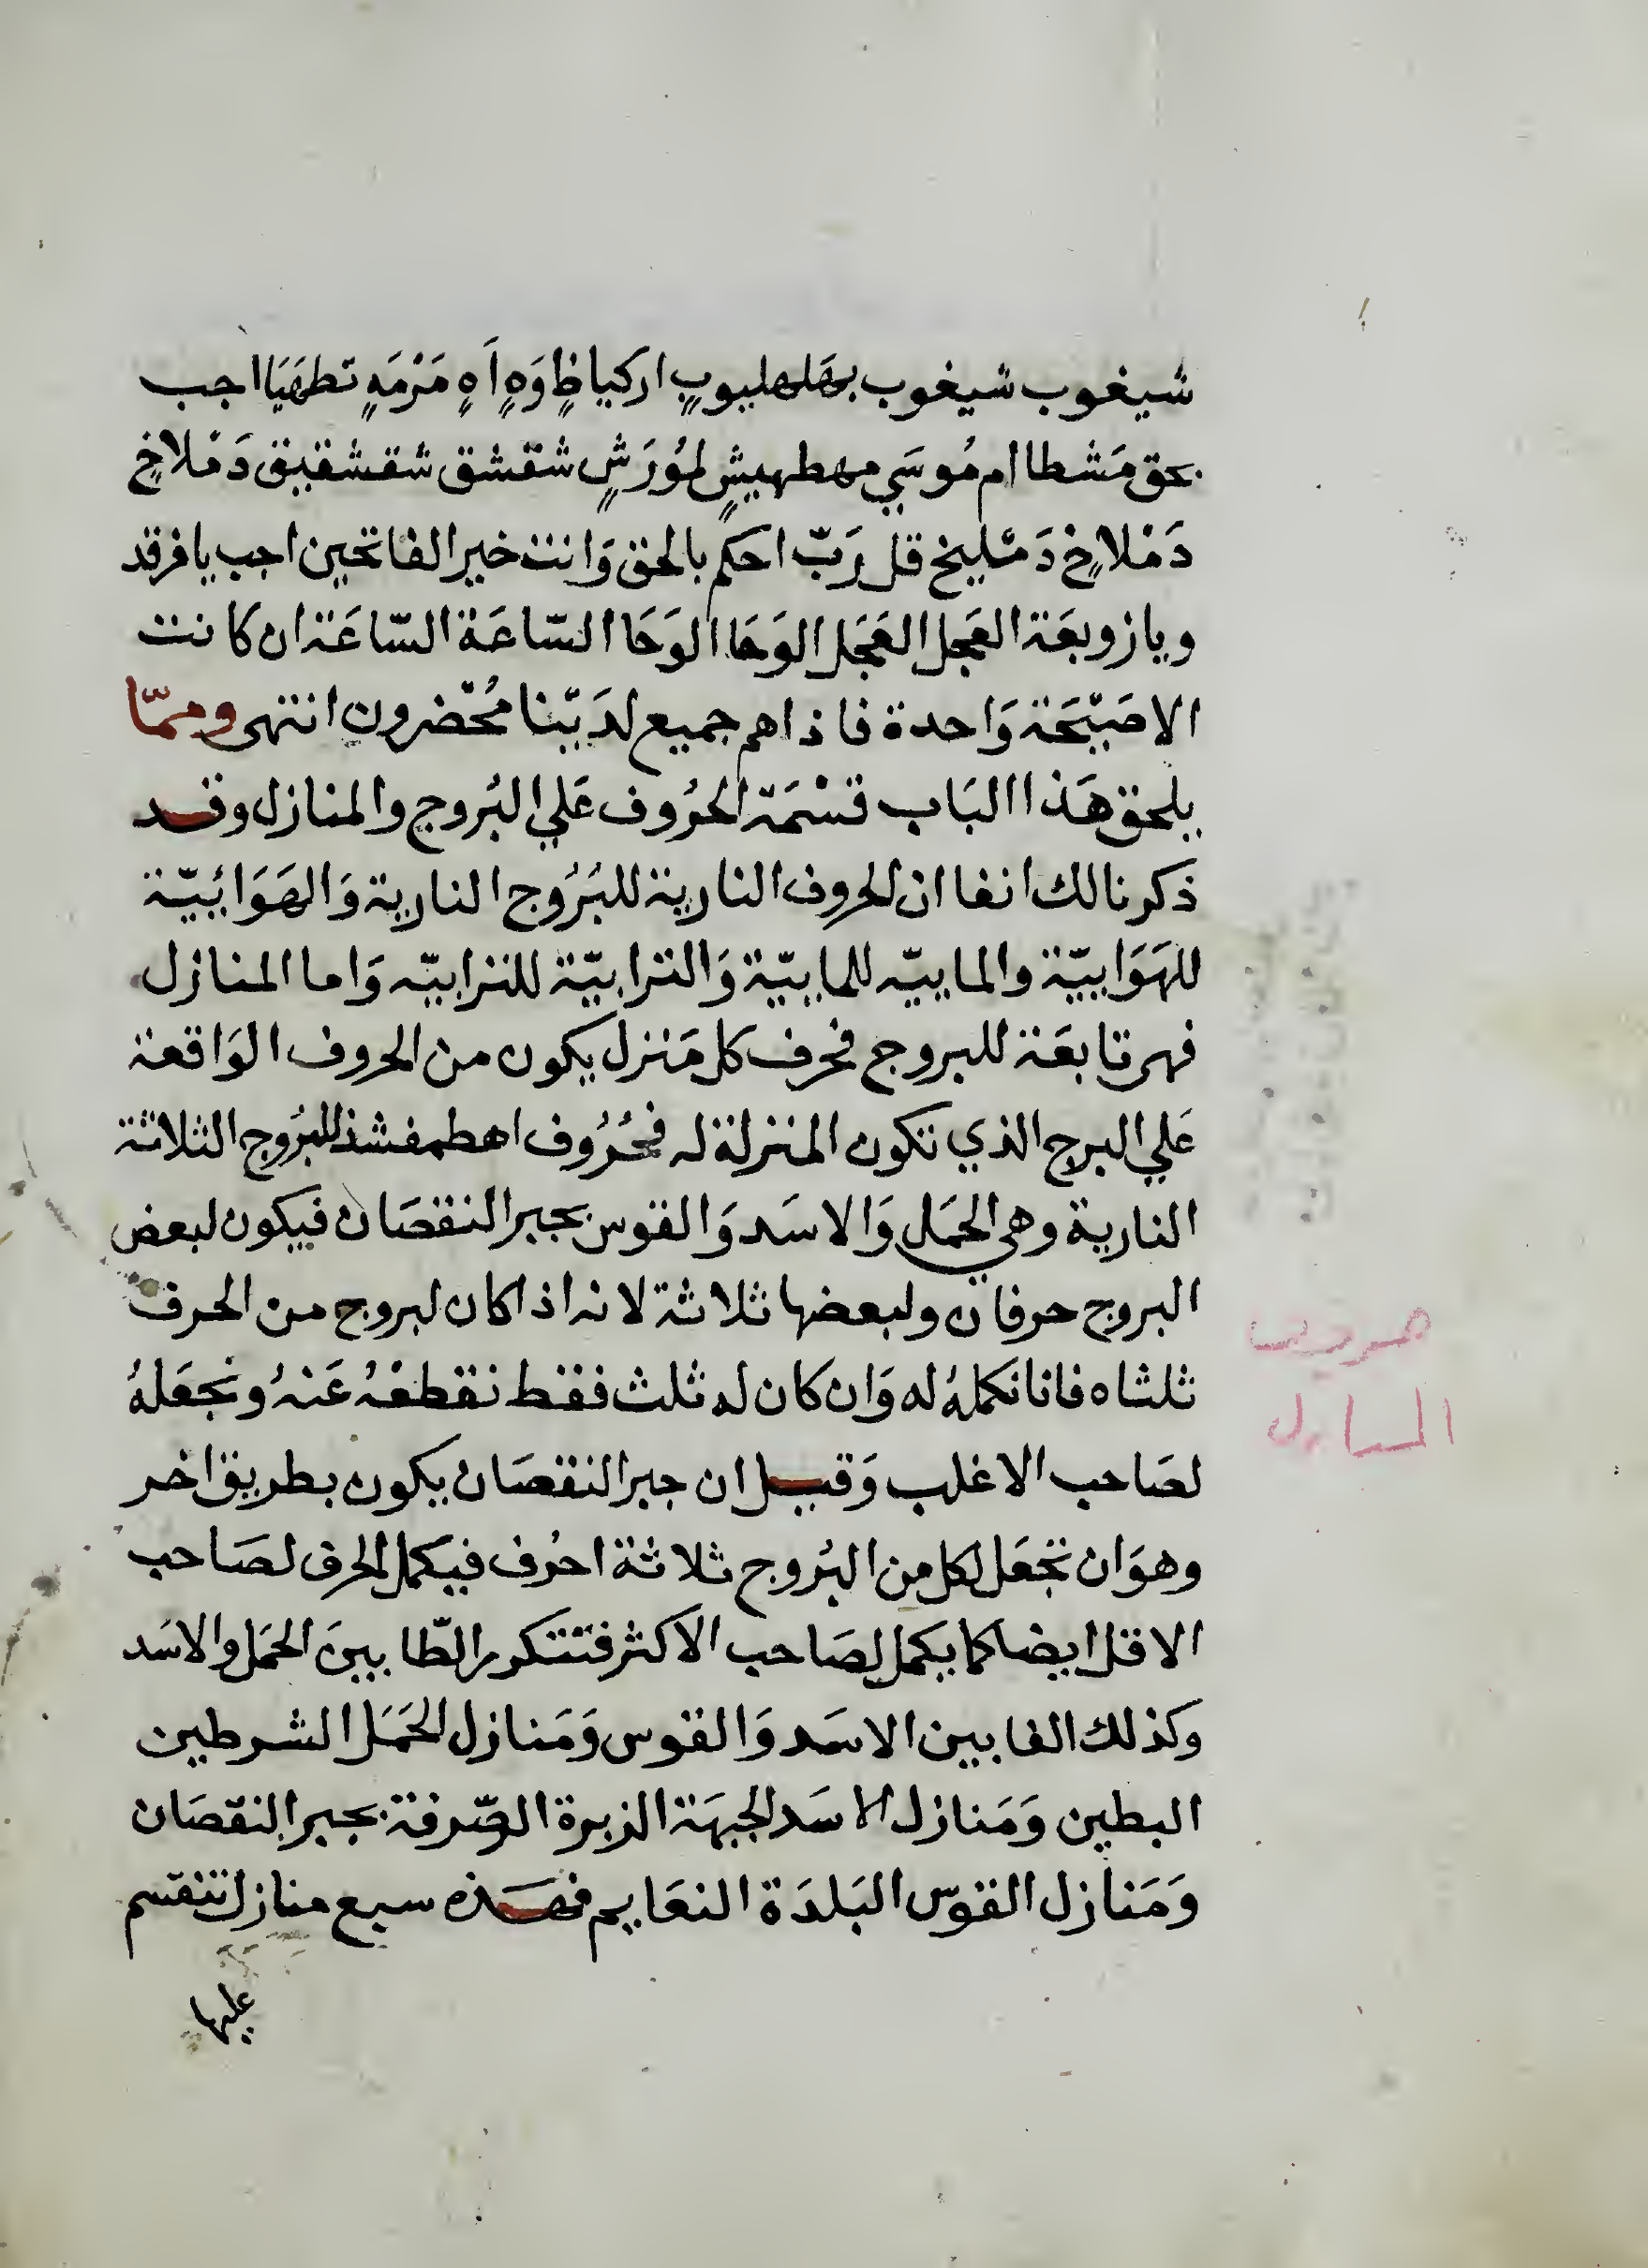 شيغوب شيغوب بهَلهليوبٍ اركياظٍ وَهٍ اَهٍ مَرْمَهٍ تطهَيَا اجب
بحق مَشطا ام مُوسَي مهطهيشٍ لمُورَشٍ شقشق شقشقيق دَمْلاخٍ
دَمْلاخٍ دَمْليخ قل رَبّ احكم بالحق وَانت خير الفاتحين اجب يا فرقد
ويا زوبعَة العَجل العَجَل الوَحَا الوَحَا السّاعَة السّاعَة ان كانت
الا صَيْحَة وَاحدة فاذا هم جميع لدَيْنا مُحْضرون انتهى وممّا
يلحق هَذا البَاب قسْمَة الحرُوف عَلي البُروج والمنازل وقد
ذكرنا لك انفا ان الحروف النارية للبُرُوج النارية وَالهَوَائيّة
للهَوَاييّة والماييّه للماييّة وَالترابيّة للترابيّه وَاما المنازل
فهى تابعَة للبروج فحرف كل مَنزل يكون من الحروف الوَاقعة
عَلي البرج الذي تكون المنزلة له فحُرُوف اهطمفشذ للبرُوج الثلاثة
النارية وهي الحمَل وَالاسَد وَالقوس بجبر النقصَان فيكون لبعض
البروج حرفان ولبعضها ثلاثة لانه اذا كان لبروج من الحرف
ثلثاه فانا نكملهُ له وَان كان له ثلث فقط نقطعْهُ عَنهُ ونجعَلهُ
لصَاحب الاغلب وَقيل ان جبر النقصَان يكون بطريق اخر
وهوَ ان تجعَل لكل من البرُوج ثلاثة احرُف فيكمل الحرف لصَاحب
الاقل ايضا كما يكمل لصَاحب الاكثر فتتكرر الطّا بينَ الحمَل والاسَد
وكذلك الفا بين الاسَد وَالقوس وَمَنازل الحَمَل الشرطين
البطين وَمَنازل الاسَد الجبهَة الزبرة الصّرفة بجبر النقصَان
وَمَنازل القوس البَلدَة النعَايم فهَذه سبع منازل تنقسم
عليها
حروف
المنازل